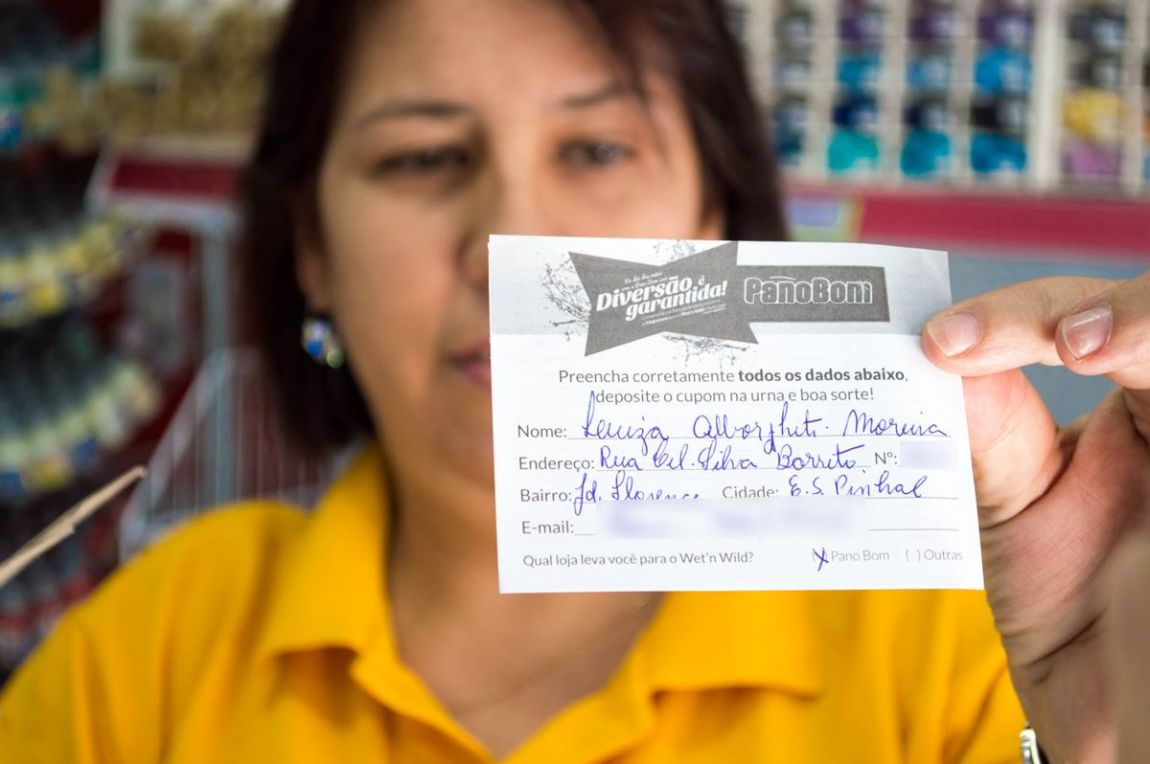 Diversão é
garantida!
PanoBom
Preencha corretamente todos os dados abaixo,
deposite o cupom na urna e boa sorte!
Nome: Leniza Alborghiti Moreira
Endereço: Rua Cel. Silva Barreto Nº:
Bairro: Jd. Florença Cidade: E.S. Pinhal
E-mail:
Qual loja leva você para o Wet'n Wild? (X) Pano Bom ( ) Outras